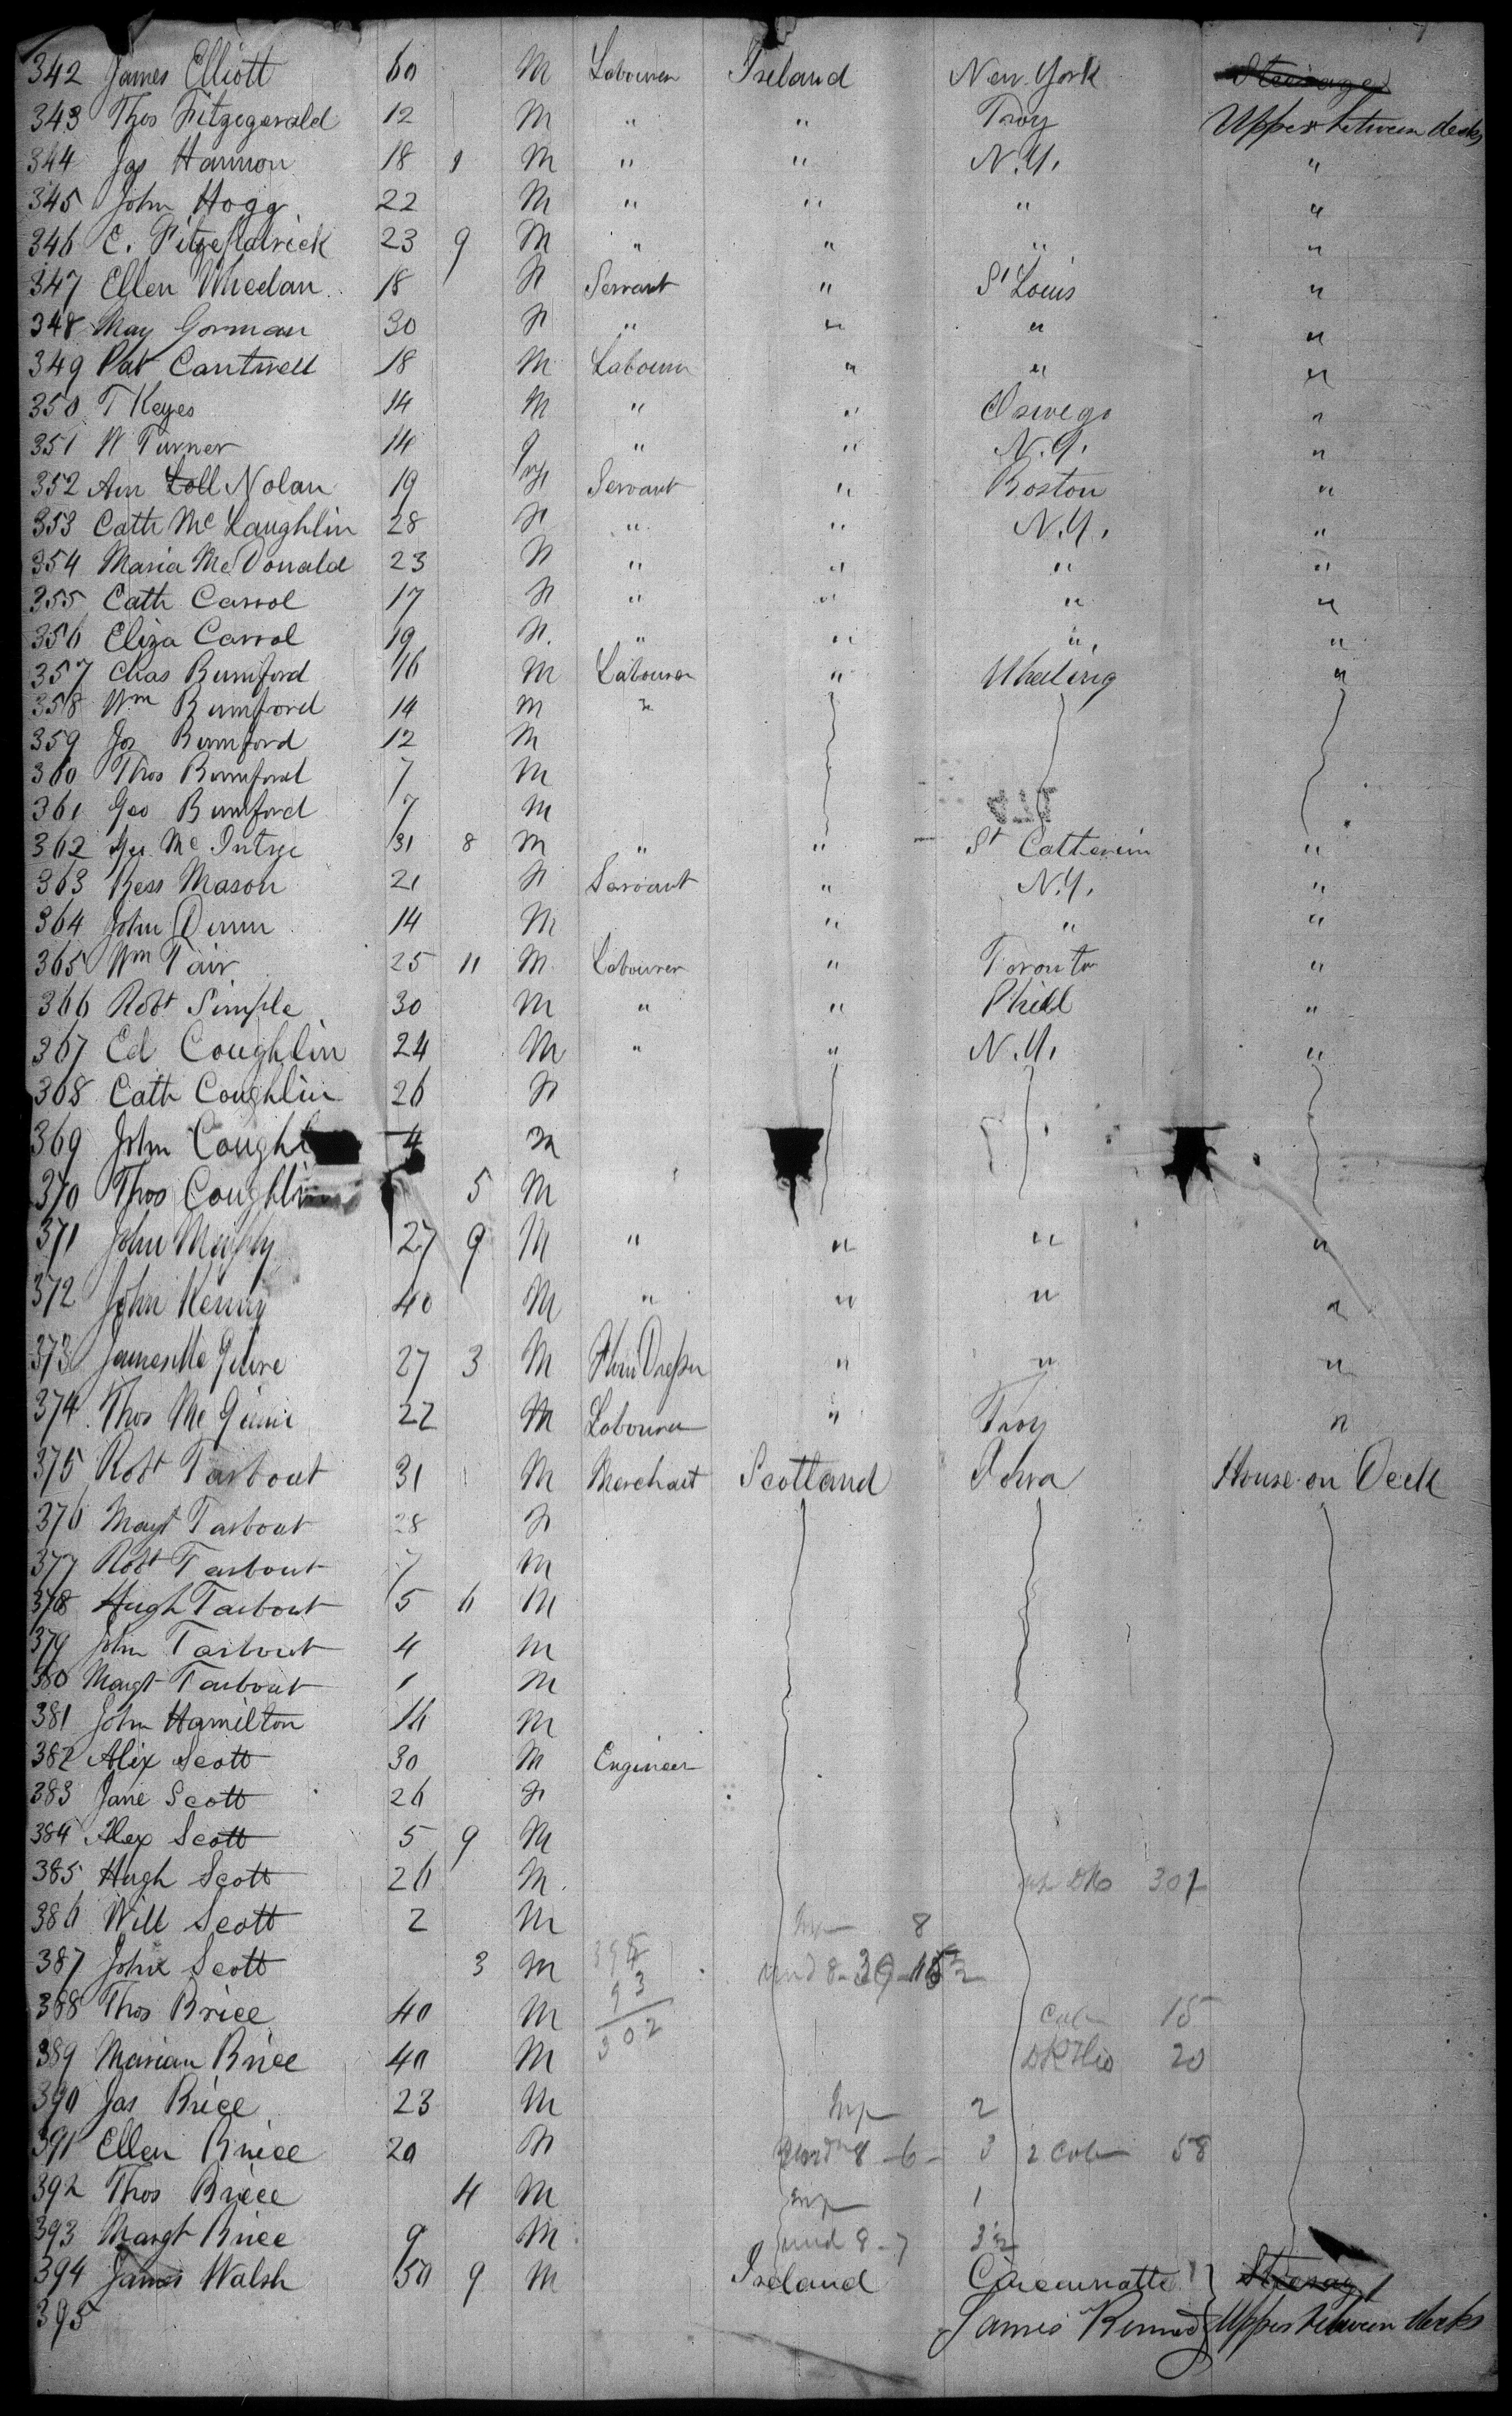 342 James Elliott 60 M Labourer Ireland New York Steerage
343 Thos Fitzgegerald 12 M " " Troy Upper between decks
344 Jas Hannon 18 1 M " " N.Y. "
345 John Hogg 22 M " " " "
346 C. Fitzepatrick 23 9 M " " " "
347 Ellen Whedan 18 F Servant " St Louis "
348 May Gorman 30 F " " " "
349 Pat Cantwell 18 M Labourer " " "
350 T Keyes 14 M " " Oswego "
351 W Turner 14 " " N.Y. "
352 Ann Toll Nolan 19 F Servant " Boston "
353 Cath McLaughlin 28 F " " N.Y. "
354 Maria McDonald 23 F " " " "
355 Cath Carrol 17 F " " " "
356 Eliza Carrol 19 F " " " "
357 Chas Bumford 16 M Labourer " Wheeling "
358 Wm Bumford 14 M "
359 Jos Bumford 12 M
360 Thos Bumford 7 M
361 Geo Bumford 7 M
362 McIntye 31 8 M " " St Catherin "
363 Bess Mason 21 F Servant " N.Y. "
364 John Dunn 14 M " " "
365 Wm Tair 25 11 M Labourer " Toronto "
366 Robt Simple 30 M " " Phill "
367 Ed Coughlin 24 M " " N.Y. "
368 Cath Coughlin 26 F
369 John Coughl 4 M
370 Thos Coughlin 5 M
371 John Murphy 27 9 M " " " "
372 John Kenny 40 M " " " "
373 James McGuire 27 3 M " " "
374 Thos McGuire 22 M Labourer " Troy "
375 Robt Tarbout 31 M Merchant Scotland Iowa House on Deck
376 Magt Tarbout 28 F
377 Robt Tarbout 7 M
378 Hugh Tarbout 5 6 M
379 John Tarbout 4 M
380 Margt Tarbout 1 M
381 John Hamilton 16 M
382 Alix Scott 30 M Engineer
383 Jane Scott 26 F
384 Alex Scott 5 9 M
385 Hugh Scott 26 M 301
386 Will Scott 2 M 8
387 John Scott 3 M 395
388 Thos Brice 40 M 93 15
389 Marian Brice 40 M 302 20
390 Jas Brice 23 M 2
391 Ellen Brice 20 F 8 - 6 - 3 2 Cab 58
392 Thos Briece 4 M 1
393 Margt Brice 9 M und 8 - 7 3½
394 James Walsh 50 9 M Ireland Cincinnatti Steerage
395 James Upper between decks